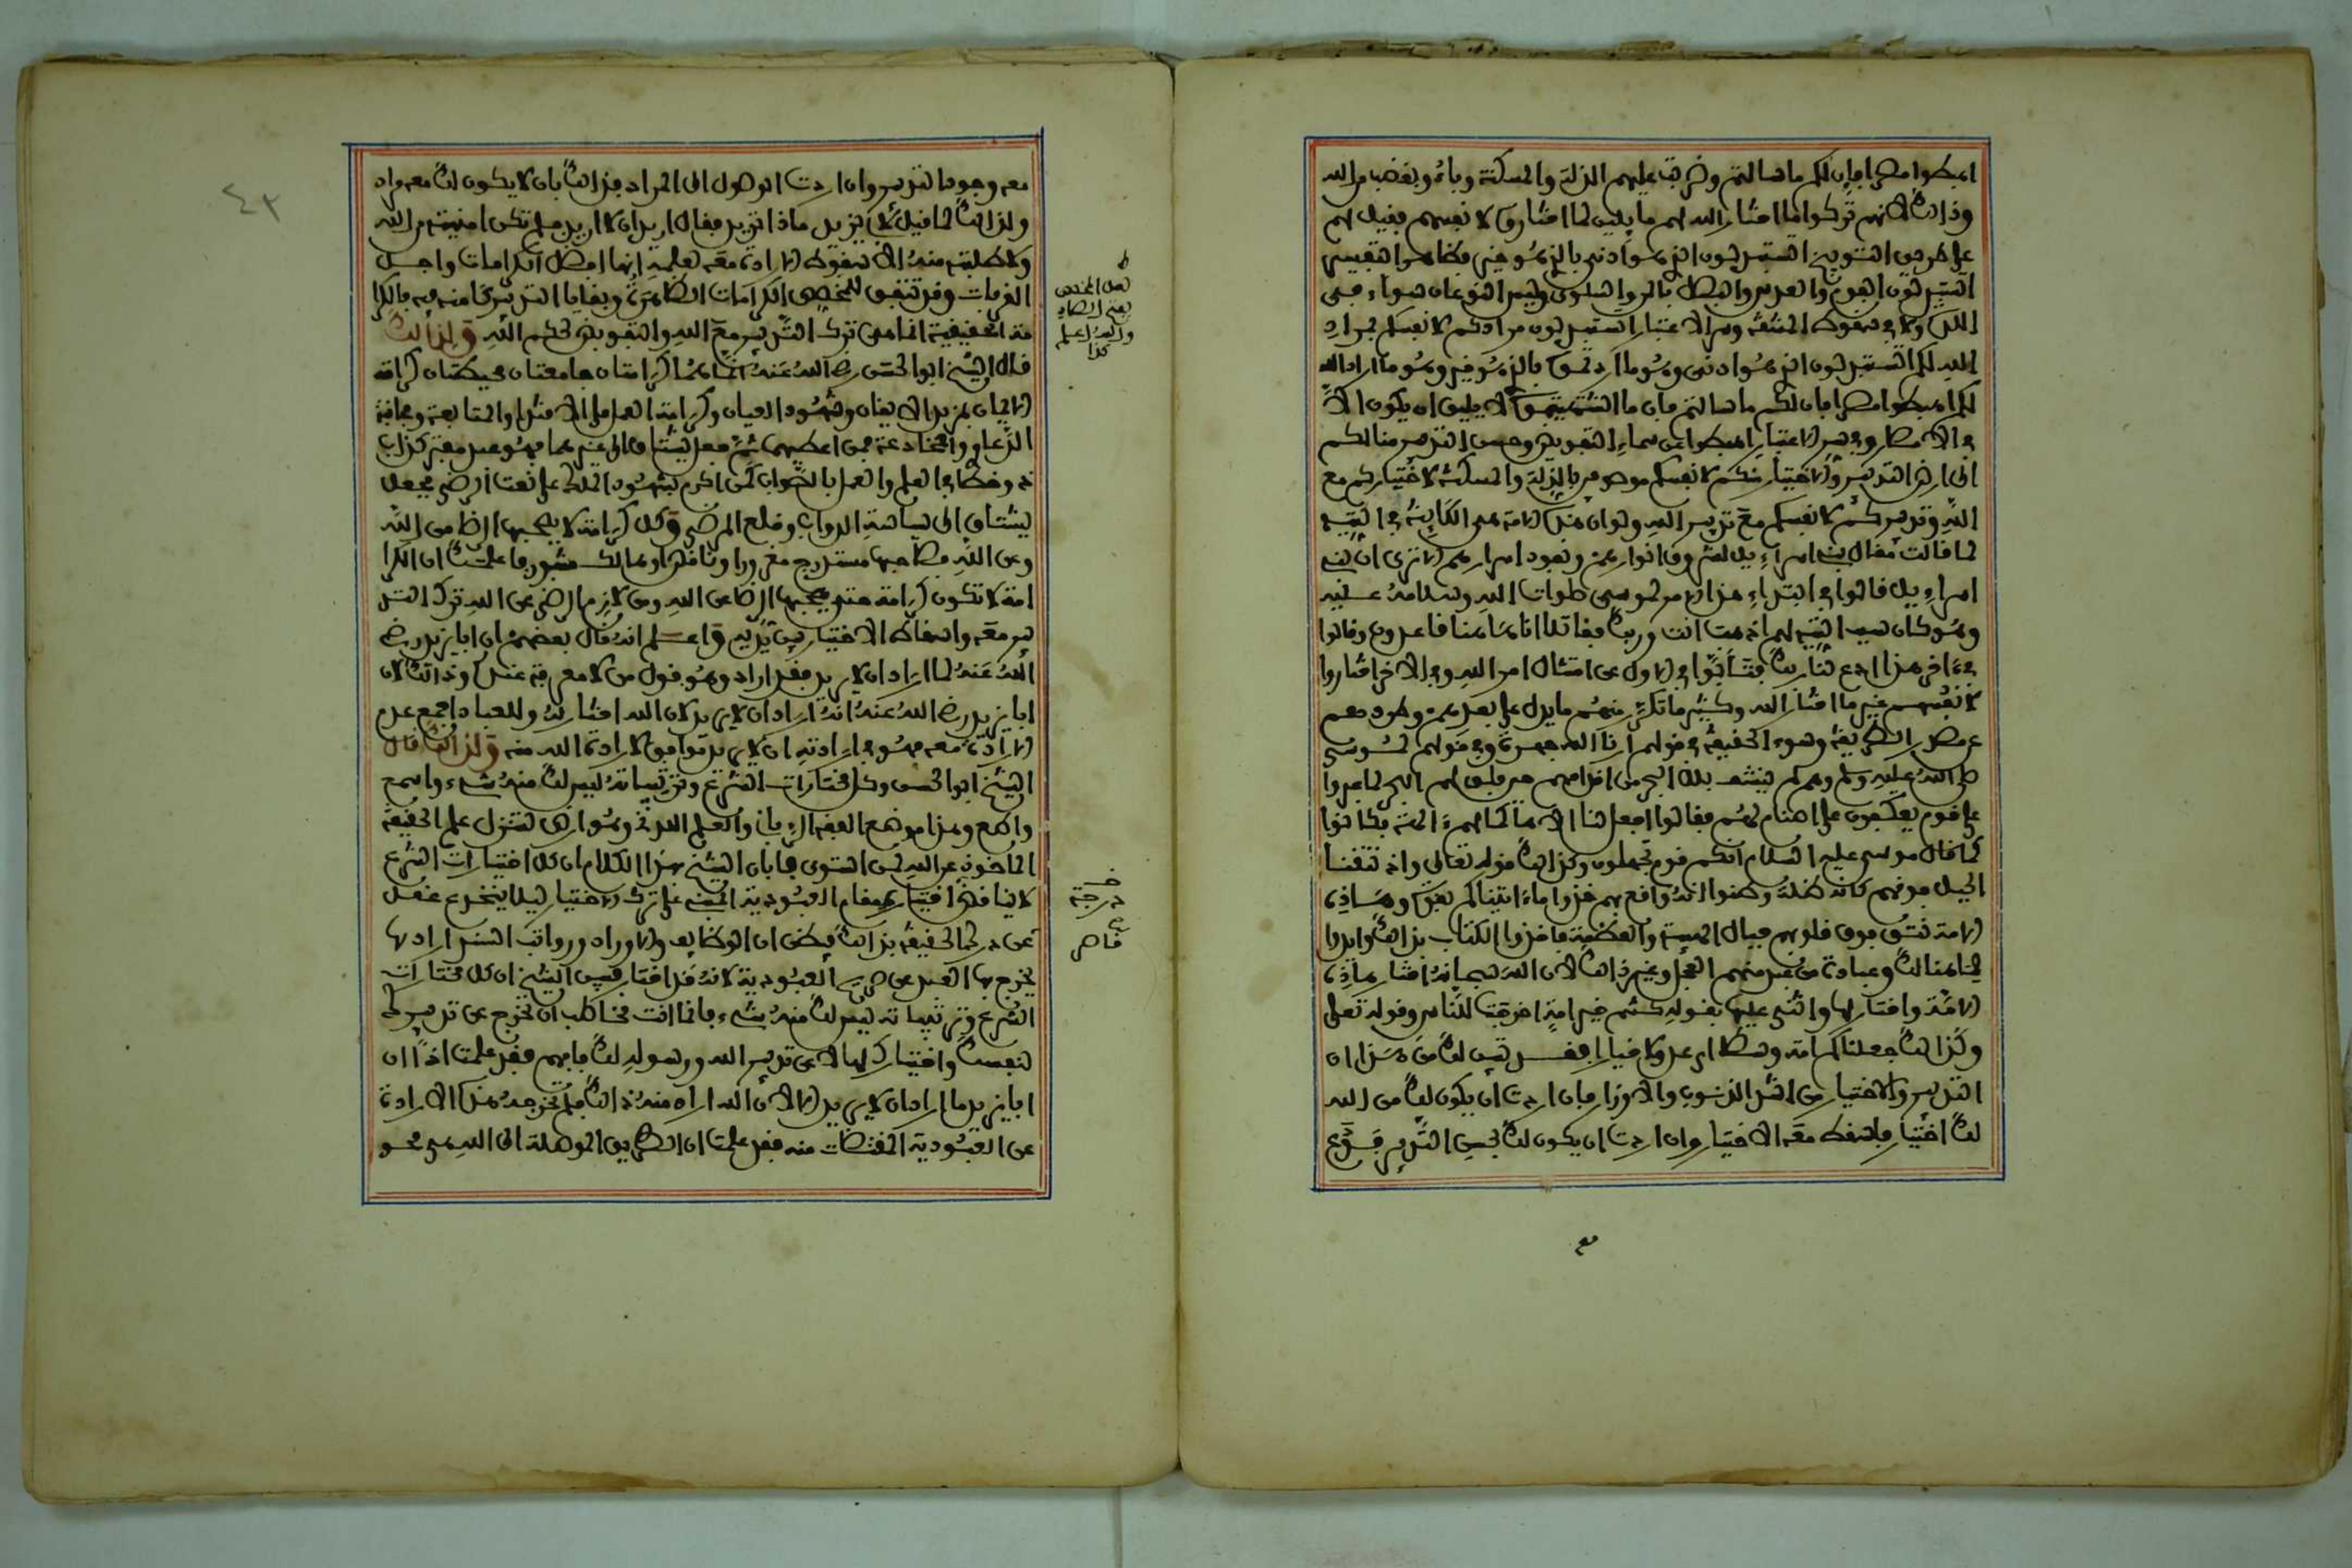 اهبطوا مصرا فإن لكم ما سالتم وضربت عليهم الذلة والمسكنة وباءو بغضب من الله
وذالك لانهم تركوا ما اختار الله لهم مما يليق لما اختاروه لانفسهم فقيل لهم
على طريق التوبيخ اتستبدلون الذي هو ادنى بالذي هو خير فظاهر التفسير
اتستبدلون الفوم والعدس والبصل بالمن والسلوى وليس النوعان سواء في
اللذة ولا في سقوط المشقة وسر الاعتبار اتستبدلون مرادكم لانفسكم بمراد
الله لكم اتستبدلون الذي هو ادنى وهو ما اردتموه بالذي هو خير وهو ما اراد الله
لكم اهبطوا مصرا فان لكم ما سالتم فان ما اشتهيتموه لا يليق ان يكون الا
في الامصار وفي سر الاعتبار اهبطوا عن سماء التفويض وحسن التدبير منا لكم
الى ارض التدبير والاختيار منكم لانفسكم موصوفين بالذلة والمسكنة لاختياركم مع
الله وتدبيركم لانفسكم مع تدبير الله ولو ان هذه الامة هي الكاينة في التيه
لما قالت مقال بني اسراءيل لشفوف انوارهم ونفوذ اسرارهم الا ترى ان بني
اسراءيل قالوا في ابتداء هذا الامر لموسى صلوات الله وسلامه عليه
وهو كان سبب التيه لهم اذهب انت وربك فقاتلا انا هاهنا قاعدون وقالوا
في ءاخر هذا ادع لنا ربك فتابوا في الاول عن امتثال امر الله وفي الاخر اختاروا
لانفسهم غير ما اختار الله وكثيرا ما تكرر منهم ما يدل على بعدهم وطردهم
عن مصدر الطريقة وهوى الحقيقة في قولهم ارنا الله جهرة وفي قولهم لموسى
صلى الله عليه وسلم ولم تنشف بلل البحر من اقدامهم حين فلق لهم البحر لما عبروا
على قوم يعكفون على اصنام لهم فقالوا اجعل لنا الاها كما لهم ءالهة فكانوا
كما قال موسى عليه السلام انكم قوم تجهلون وكذالك قوله تعالى واذ نتقنا
الجبل فوقهم كانه ظلة وظنوا انه واقع بهم خذوا ما ءاتيناكم بقوة وهاذه
الامة نتق فوق قلوبهم جبال الهيبة والعظمة فاخذوا الكتاب بذالك وايدوا
لما هنالك وعبادة من عبد منهم العجل وغير ذالك لان الله سبحانه اختار هاذه
الامة واختار لها واثنى عليها بقوله كنتم خير امة اخرجت للناس وقوله تعلى
وكذالك جعلناكم امة وسطا اي عدولا خيارا فقد تبين لك من هذا ان
التدبير والاختيار من اشد الذنوب والاوزار فان اردت ان يكون لك من الله
لك اختيار فاسقط معه الاختيار وان اردت ان يكون لك بحسن التدبير فتدع
مع
٤٢
معه وجود التدبير وان اردت الوصول الى المراد فذالك بان لا يكون لك معه مراد
ولذالك لما قيل لابي يزيد ماذا تريد فقال اريد ان لا اريد فلم تكن امنيته من الله
ولا طلبته منه الا سقوط الارادة معه لعلمه انها افضل الكرامات واجل
القربات وقد تتفق للمخصص الكرامات الظاهرة وبقايا التدبير كامنة فيه فالكرا
مة الحقيقية انما هي ترك التدبير مع الله والتفويض لحكم الله ولذالك
قال الشيخ ابو الحسن رضي الله عنه انما هما كرامتان جامعتان محيطتان كرامة
الايمان بمزيد الايقان وشهود العيان وكرامة العمل على الاقتداء والمتابعة ومجانبة
الدعاوي والمخادعة فمن اعطيهما ثم جعل يشتاق الى غيرهما فهو عبد مفتر كذاب
ذو خطا في العلم والعمل بالصواب كمن اكرم بشهود الملك على نعت الرضى فجعل
يشتاق الى سياسة الدواب وخلع المرضى وكل كرامة لا يصحبها الرضا من الله
وعن الله فصاحبها مستدرج مغرور او ناقص او هالك مثبور فاعلمك ان الكرا
مة لا تكون كرامة حتى يصحبها الرضا عن الله ومن لازم الرضى عن الله ترك التد
بير معه واسقاط الاختيار بين يديه واعلم انه قال بعضهم ان ابا يزيد رضي
الله عنه لما اراد ان لا يريد فقد اراد وهو قول من لا معرفة عنده وذالك لان
ابا يزيد رضي الله عنه انه اراد ان لا يريد لان الله اختار له وللعباد اجمع عدم
الارادة معه فهو في ارادته ان لا يريد موافق لارادة الله منه ولذالك قال
الشيخ ابو الحسن وكل مختارات الشرع وترتيباته ليس لك منه شيء واسمع
واطع وهذا موضع الفقه الرباني والعلم اللدني وهو ارض لتنزل علم الحقيقة
الماخوذ عن الله لمن استوى فافاد الشيخ بهذا الكلام ان كل اختيارات الشرع
لا يناقض اختيارها مقام العبودية المبني على ترك الاختيار ليلا ينخدع عقل
عن درك الحقيقة بذالك فيظن ان الوظايف والاوراد ورواتب السنن ارادتها
يخرج بها العبد عن صريح العبودية لانه قد اختار فبين الشيخ ان كل مختارات
الشرع وترتيباته ليس لك منه شيء فانما انت مخاطب ان تخرج عن تدبيرك
لنفسك واختيارك لها لا عن تدبير الله ورسوله لك فافهم فقد علمت اذا ان
ابا يزيد ما اراد ان لا يريد الا لان الله اراد منه ذالك فلم تخرجه هذه الارادة
عن العبودية المقتضات منه فقد علمت ان الطريق الموصلة الى الله هي محو
ط
لعل المخصص
بفتح الصاد
والله اعلم
كذا
خـ
درجة
ع
قاص